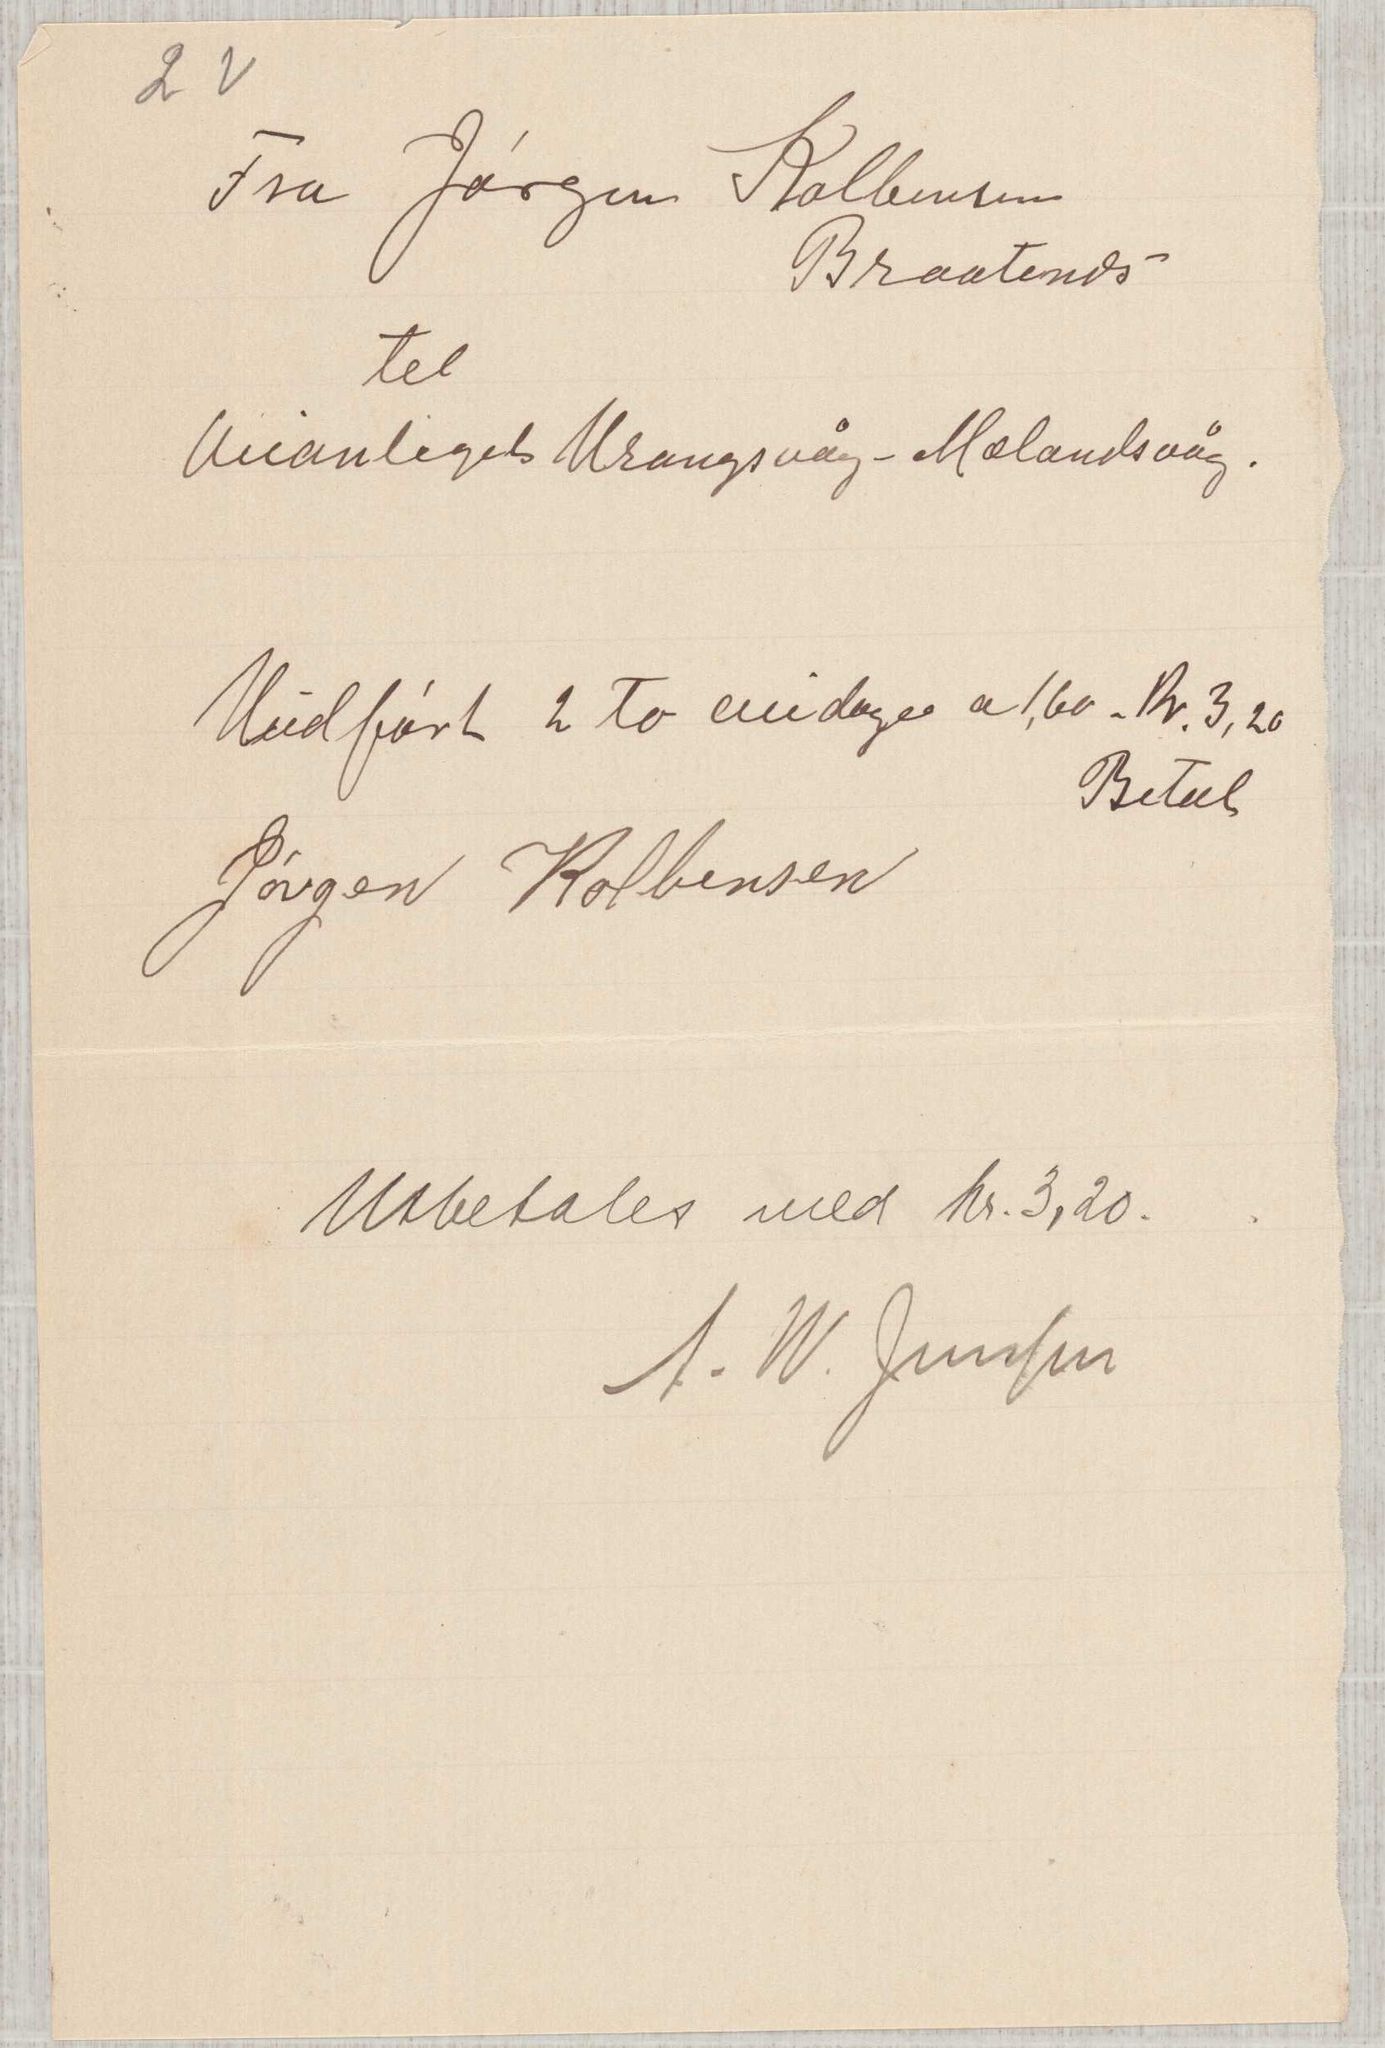 2 V
Fra Jórgen Kolbensen
Braatends
tel
Veianleget Urangsvåg - Mælandsvåg.
Uudfórt 2 to veidage a 1,60 - Kr. 3,20
Betal
Jórgen Kolbensen
Utbetales med kr. 3,20.
A. W. Jensen